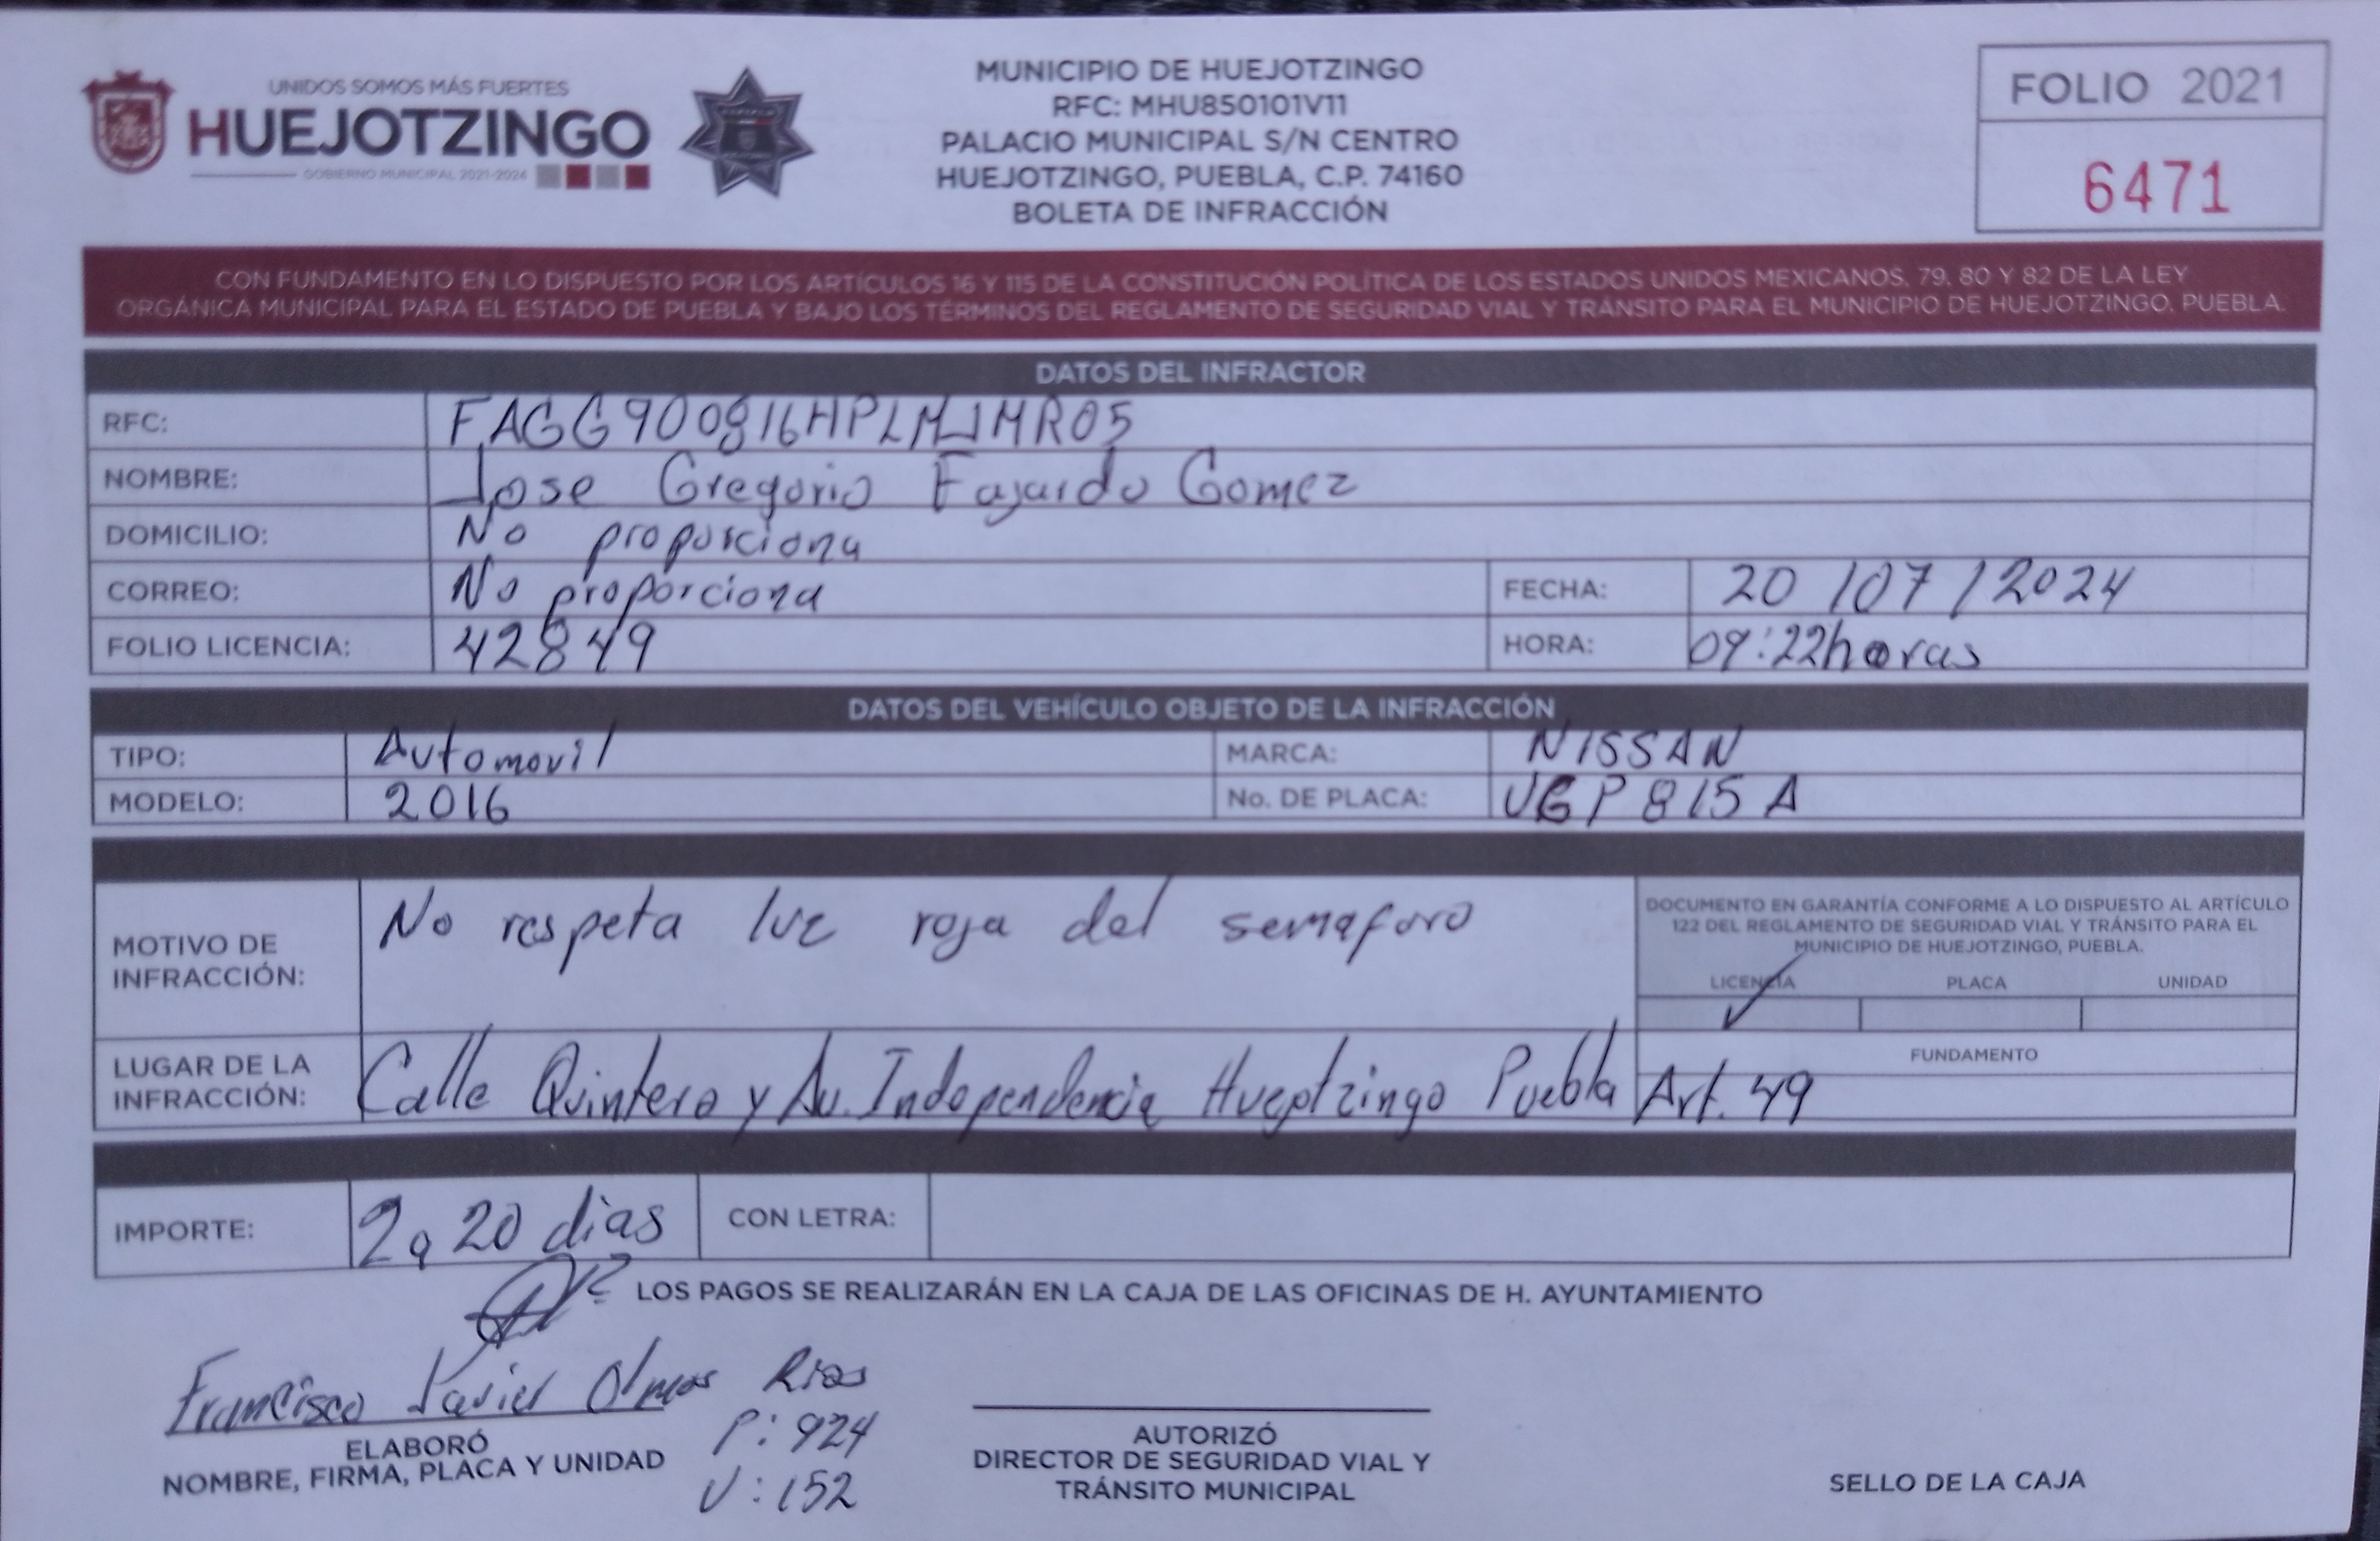 UNIDOS SOMOS MÁS FUERTES
HUEJOTZINGO
GOBIERNO MUNICIPAL 2021-2024
MUNICIPIO DE HUEJOTZINGO
RFC: MHU850101V11
PALACIO MUNICIPAL S/N CENTRO
HUEJOTZINGO, PUEBLA, C.P. 74160
BOLETA DE INFRACCIÓN
FOLIO 2021
6471
CON FUNDAMENTO EN LO DISPUESTO POR LOS ARTÍCULOS 16 Y 115 DE LA CONSTITUCIÓN POLÍTICA DE LOS ESTADOS UNIDOS MEXICANOS, 79, 80 Y 82 DE LA LEY
ORGÁNICA MUNICIPAL PARA EL ESTADO DE PUEBLA Y BAJO LOS TÉRMINOS DEL REGLAMENTO DE SEGURIDAD VIAL Y TRÁNSITO PARA EL MUNICIPIO DE HUEJOTZINGO, PUEBLA.
DATOS DEL INFRACTOR
RFC: FAGG900816HPLMJMR05
NOMBRE: Jose Gregorio Fajardo Gomez
DOMICILIO: No proporciona
CORREO: No proporciona FECHA: 20/07/2024
FOLIO LICENCIA: 42849 HORA: 09:22horas
DATOS DEL VEHÍCULO OBJETO DE LA INFRACCIÓN
TIPO: Automovil MARCA: NISSAN
MODELO: 2016 No. DE PLACA: UGP815A
MOTIVO DE
INFRACCIÓN:
No respeta luz roja del semaforo
DOCUMENTO EN GARANTÍA CONFORME A LO DISPUESTO AL ARTÍCULO
122 DEL REGLAMENTO DE SEGURIDAD VIAL Y TRÁNSITO PARA EL
MUNICIPIO DE HUEJOTZINGO, PUEBLA.
LICENCIA PLACA UNIDAD
LUGAR DE LA
INFRACCIÓN:
Calle Quintero y Av. Independencia Huejotzingo Puebla
FUNDAMENTO
Art. 49
IMPORTE: 2 a 20 dias CON LETRA:
LOS PAGOS SE REALIZARÁN EN LA CAJA DE LAS OFICINAS DE H. AYUNTAMIENTO
Francisco Javier Olmos Rios
P: 924
U: 152
ELABORÓ
NOMBRE, FIRMA, PLACA Y UNIDAD
AUTORIZÓ
DIRECTOR DE SEGURIDAD VIAL Y
TRÁNSITO MUNICIPAL
SELLO DE LA CAJA